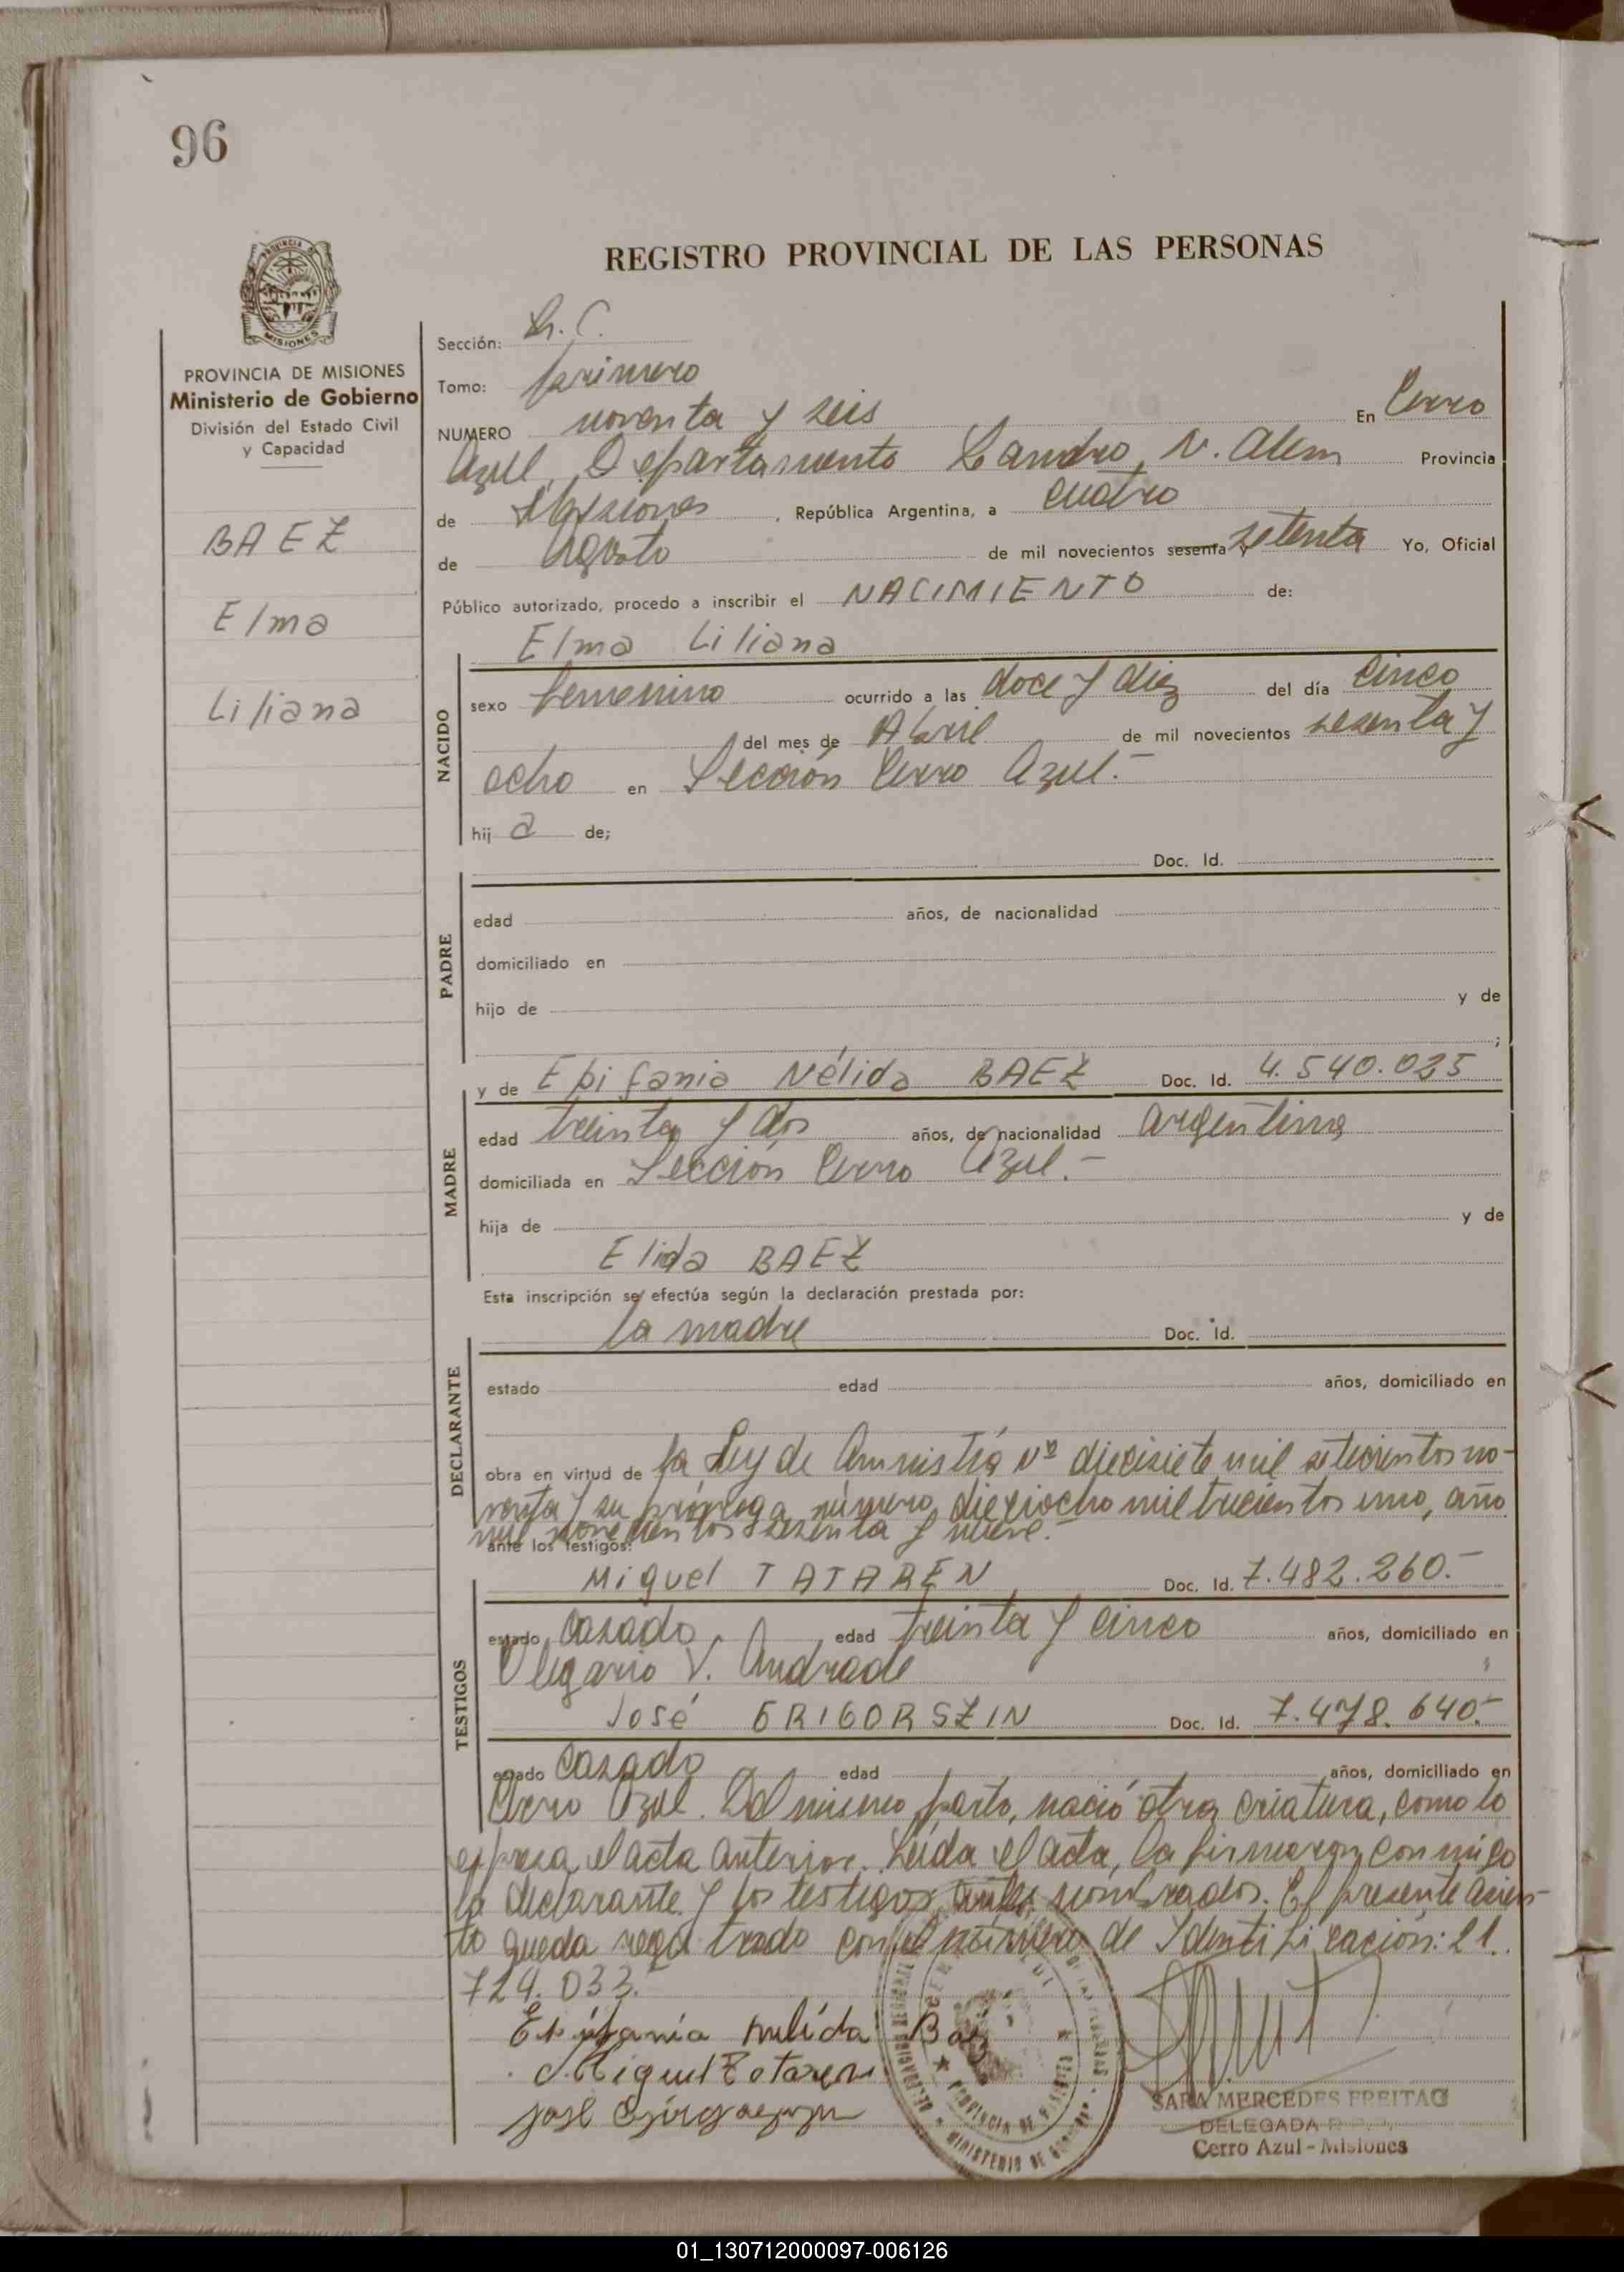 96
REGISTRO PROVINCIAL DE LAS PERSONAS
MISIONES
PROVINCIA DE MISIONES
Ministerio de Gobierno
División del Estado Civil
y Capacidad
BAEZ
Elma
Liliana
Sección:
Tomo: primero
NUMERO noventa y seis En Cerro
Azul, Departamento Leandro N. Alem Provincia
de Misiones, República Argentina, a cuatro
de Agosto de mil novecientos sesenta y setenta Yo, Oficial
Público autorizado, procedo a inscribir el NACIMIENTO de:
Elma Liliana
NACIDO
sexo femenino ocurrido a las doce y diez del día cinco
del mes de Abril de mil novecientos sesenta y
ocho en Sección Cerro Azul.-
hij a de;
Doc. Id.
PADRE
edad años, de nacionalidad
domiciliado en
hijo de y de
;
y de Epifania Nélida BAEZ Doc. Id. 4.540.025
MADRE
edad treinta y dos años, de nacionalidad argentina
domiciliada en Sección Cerro Azul.-
hija de y de
Elida BAEZ
Esta inscripción se efectúa según la declaración prestada por:
la madre Doc. Id.
DECLARANTE
estado edad años, domiciliado en
obra en virtud de la Ley de Amnistía Nº diecisiete mil setecientos no-
venta y su prórroga número dieciocho mil trecientos uno, año
mil novecientos sesenta y nueve.-
ante los testigos:
Miguel TATAREN Doc. Id. 7.482.260.-
TESTIGOS
estado casado edad treinta y cinco años, domiciliado en
Olegario V. Andrade
José GRIGORSZIN Doc. Id. 7.478.640.-
estado casado edad años, domiciliado en
Cerro Azul. Del mismo parto, nació otra criatura, como lo
expresa el acta anterior. Leída el acta, la firmaron conmigo
la declarante y los testigos antes nombrados. El presente asien-
to queda registrado con el número de Identificación: 21.
724.033.-
Epifania nelida Baez
Miguel Tataren
José
PROVINCIA DE MISIONES
MINISTERIO DE GOBIERNO
SARA MERCEDES FREITAG
DELEGADA
Cerro Azul - Misiones
01_130712000097-006126